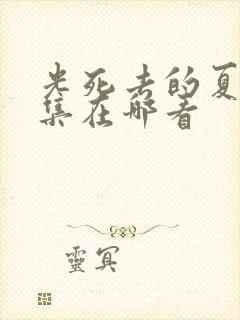 光死去的夏
集在哪看
靈冥